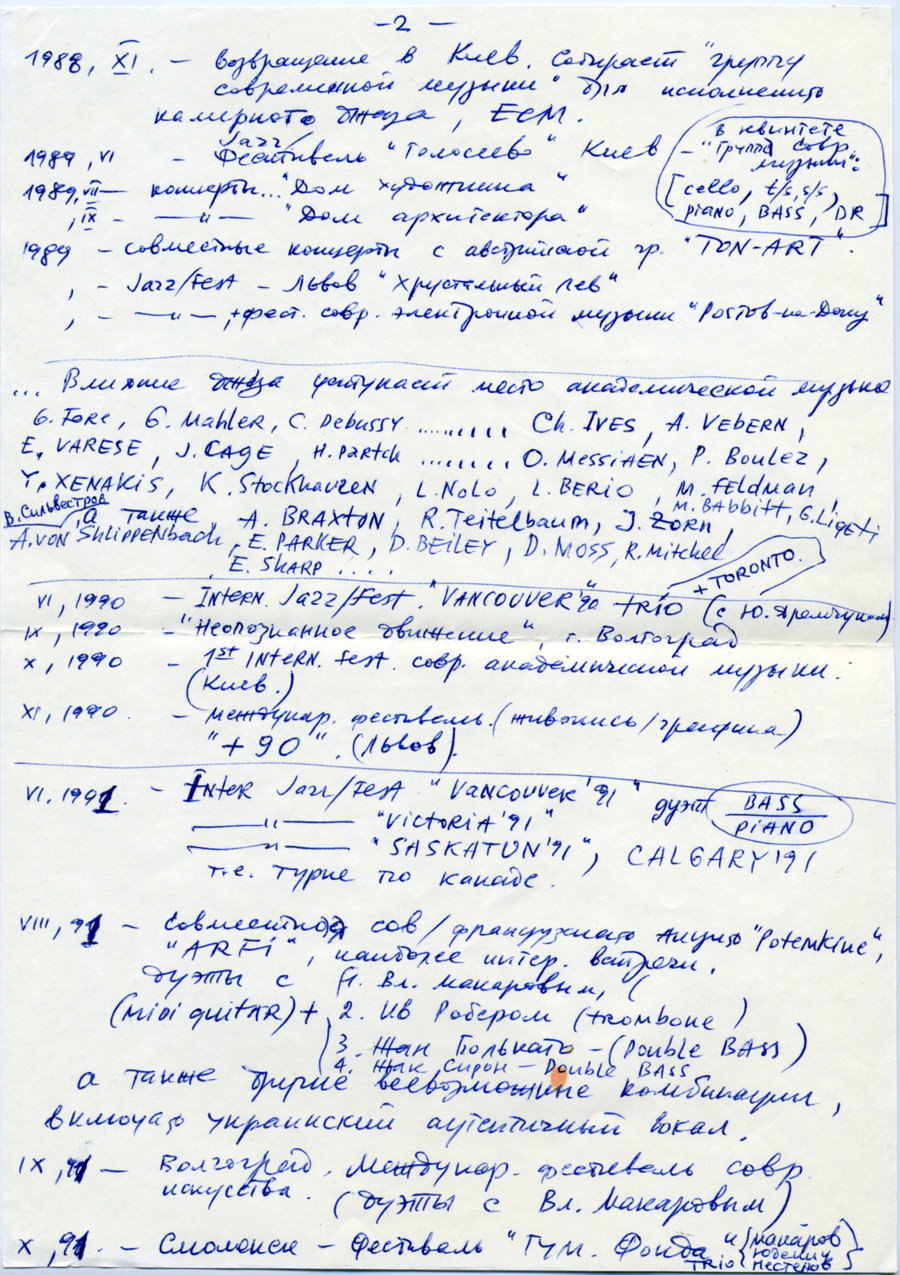 -2-
1988, XI. - возвращение в Киев. Собирает "группу
современной музыки" для исполнения
камерного джаза, ECM.
1989, VI - Jazz/Фестиваль "Голосеево" Киев - в квинтете
"Группа совр. музыки":
[cello, t/s, s/s,
piano, BASS, DR]
1989, VII - концерты... "Дом художника"
, IX - —„— "Дом архитектора"
1989 - совместные концерты с австрийской гр. "TON-ART".
, - Jazz/Fest - Львов "Хрустальный лев"
, - —„—, + фест. совр. электронной музыки "Ростов-на-Дону"
... Влияние джаза уступает место академической музыке
G. Fore, G. Mahler, C. Debussy ......... Ch. IVES, A. VEBERN,
E. VARESE, J. CAGE, H. Partch ........ O. MESSIAEN, P. Boulez,
Y. XENAKIS, K. Stockhauzen, L. Nolo, L. BERIO, M. FELDMAN,
M. BABBitt, G. Ligeti
В. Сильвестров, а также A. BRAXTON, R. Teitelbaum, J. ZORN,
A. VON Shlippenbach, E. PARKER, D. BEILEY, D. MOSS, R. Mitchel
E. SHARP ....
+ TORONTO.
VI, 1990 - INTERN. Jazz/Fest. "VANCOUVER'90" TRIO (с Ю. Яремчуком)
IX, 1990 - "Неопознанное движение", г. Волгоград
X, 1990 - 1st INTERN. fest. совр. академической музыки.
(Киев.)
XI, 1990. - Междунар. фестиваль. (живопись/графика)
"+90". (Львов).
VI. 1991. - INTER Jazz/Fest "VANCOUVER'91" дуэт BASS
PIANO
—„— "VICTORIA'91"
—„— "SASKATUN'91", CALGARY'91
т.е. турне по Канаде.
VIII, 91 - Совместная сов/французского "Potemkine",
"ARFI", наиболее интер. встречи.
дуэты с Вл. Макаровым, (
(midi guitAR) + 2. Ив Робером (trombone)
3. Жан Болькато - (Double BASS)
4. Жак Сирон - Double BASS
а также другие всевозможные комбинации,
включая украинский аутентичный вокал.
IX, 91 - Волгоград. Междунар. фестиваль совр.
искусства. (дуэты с Вл. Макаровым)
X, 91. - Смоленск - Фестиваль "Гум. Фонда"
TRIO {Макаров
Нестеров}